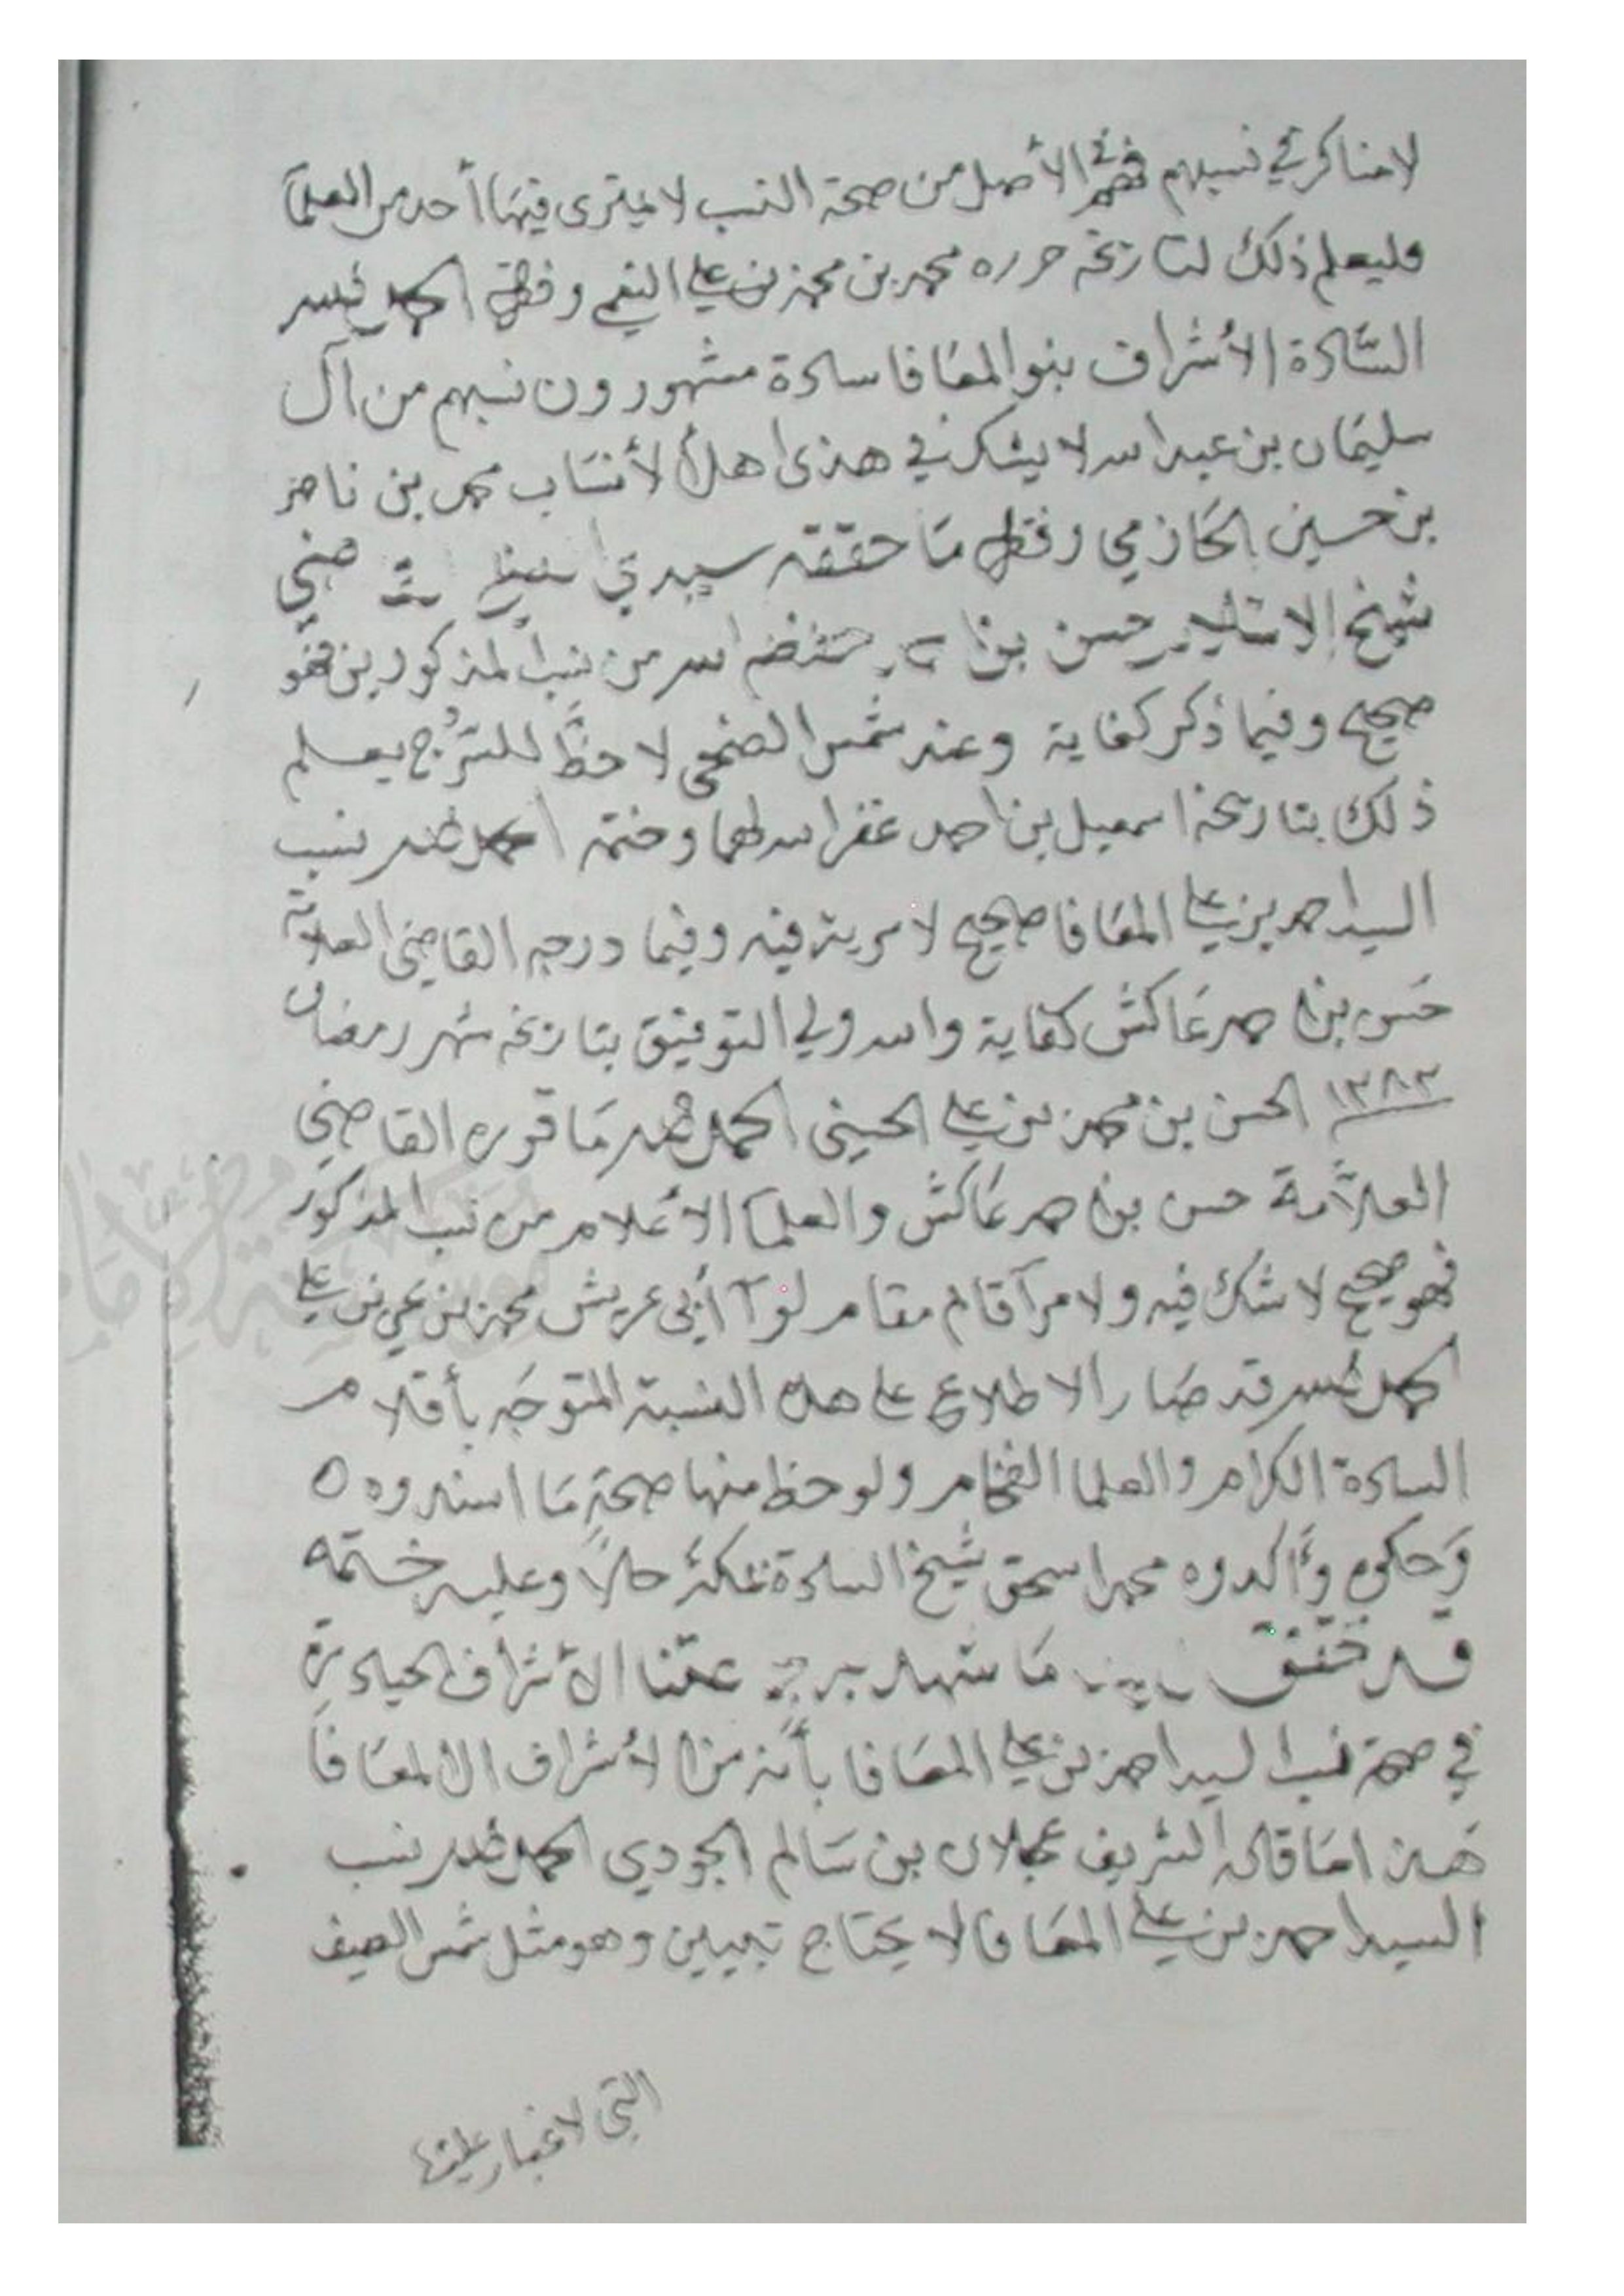 لا مناكر في نسبهم فهم في الأصل من صحة النسب لا يمترى فيها أحد من العلمآ
فليعلم ذلك لتاريخه حرره محمد بن محمد بن علي النعمي وفقه الحمد لله
السَّادة الأشراف بنو المعَافا سادة مشهورون نسبهم من آل
سليمَان بن عبد الله لا يشك في هذى اهل الأنسَاب محمد بن ناصر
بن حسين الحَازمي وفقه مَا حققه سيدي
شيخ الاسلام حسن بن احمد حفظه الله من نسب المذكورين فهو
صحيح وفيما ذكر كفاية وعند شمس الضحى لا حظَّ للسُّرُج يعلم
ذلك بتاريخه اسمعيل بن احمد غفر الله لهما وختمه الحمد لله نسب
السيد احمد بن علي المعَافا صحيح لا مرية فيه وفيما درجه القاضى العلامة
حَسن بن احمد عَاكش كفاية والله ولي التوفيق بتاريخه شهر رمضان
١٣٨٣ الحسن بن محمد بن علي الحسينى الحمد لله مَا قوره القاضي
العلاَّمة حسن بن احمد عَاكش والعلمآ الأعلام من نسب المذكور
فهو صحيح لا شك فيه ولا مرآ قائم مقام لوآ أبى عريش محمد بن علي
الحمد لله قد صَار الاطلاع على هذه النسبة المتوجَه بأقلام
السادة الكرام والعلما الفخام ولوحظ منها صحة مَا اسندوه
وَحاكوه وأَكدوه محمد اسحق شيخ السادة بمكة حالاً وعليه ختمه
قد تحقق مَا شهد به عمّنا الأشراف الحيادرة
في صحة نسب السيد احمد بن علي المعَافا بأَنه من الأشراف ال المعَافا
هَذا مَا قاله الشريف عجلان بن سَالم الجودي الحمد لله نسب
السيد احمد بن علي المعَافا لا يحتاج تبيين وهو مثل شمس الصيف
التي لا غبار عليها